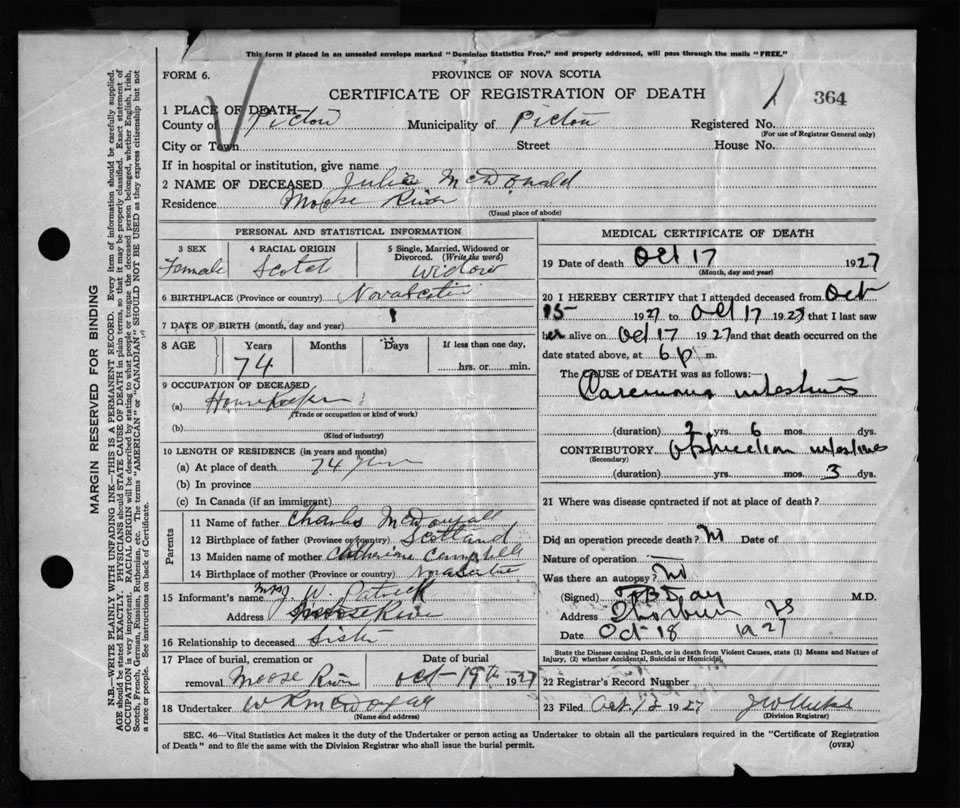 This form if placed in an unsealed envelope marked "Dominion Statistics Free," and properly addressed, will pass through the mails "FREE."
FORM 6.
PROVINCE OF NOVA SCOTIA
CERTIFICATE OF REGISTRATION OF DEATH
364
1 PLACE OF DEATH—
County of Pictou Municipality of Pictou Registered No.
(For use of Registrar General only)
City or Town Street House No.
If in hospital or institution, give name
2 NAME OF DECEASED Julia McDonald
Residence Moose River
(Usual place of abode)
PERSONAL AND STATISTICAL INFORMATION
3 SEX 4 RACIAL ORIGIN 5 Single, Married, Widowed or Divorced. (Write the word)
Female Scotch Widow
6 BIRTHPLACE (Province or country) Nova Scotia
7 DATE OF BIRTH (month, day and year)
8 AGE Years Months Days If less than one day,
74 hrs. or min.
9 OCCUPATION OF DECEASED
(a) Housekeeper
(Trade or occupation or kind of work)
(b)
(Kind of industry)
10 LENGTH OF RESIDENCE (in years and months)
(a) At place of death 74 years
(b) In province
(c) In Canada (if an immigrant)
Parents
11 Name of father Charles McDougall
12 Birthplace of father (Province or country) Scotland
13 Maiden name of mother Catherine Campbell
14 Birthplace of mother (Province or country) Nova Scotia
15 Informant's name Mrs J. W. Patrick
Address Moose River
16 Relationship to deceased Sister
17 Place of burial, cremation or removal Date of burial
Moose River Oct 19th 1927
18 Undertaker
(Name and address)
MEDICAL CERTIFICATE OF DEATH
19 Date of death Oct 17 1927
(Month, day and year)
20 I HEREBY CERTIFY that I attended deceased from Oct
15 1927 to Oct 17 1927 that I last saw
her alive on Oct 17 1927 and that death occurred on the
date stated above, at 6 p m.
The CAUSE of DEATH was as follows:—
intestines
(duration) 2 yrs. 6 mos. dys.
CONTRIBUTORY obstruction intestines
(Secondary)
(duration) yrs. mos. 3 dys.
21 Where was disease contracted if not at place of death?
Did an operation precede death? No Date of
Nature of operation —
Was there an autopsy? No
(Signed) Day M.D.
Address Thorburn NS
Date Oct 18 1927
State the Disease causing Death, or in death from Violent Causes, state (1) Means and Nature of
Injury, (2) whether Accidental, Suicidal or Homicidal.
22 Registrar's Record Number
23 Filed Oct 1927
(Division Registrar)
SEC. 46—Vital Statistics Act makes it the duty of the Undertaker or person acting as Undertaker to obtain all the particulars required in the "Certificate of Registration
of Death" and to file the same with the Division Registrar who shall issue the burial permit.
(OVER)
MARGIN RESERVED FOR BINDING
N.B.—WRITE PLAINLY WITH UNFADING INK—THIS IS A PERMANENT RECORD. Every item of information should be carefully supplied.
AGE should be stated EXACTLY. PHYSICIANS should STATE CAUSE OF DEATH in plain terms, so that it may be properly classified. Exact statement of
OCCUPATION is very important. RACIAL ORIGIN will be described by stating to what people or tongue the deceased person belonged, whether English, Irish,
Scotch, French, German, Russian, Ruthenian, etc. The terms "AMERICAN" or "CANADIAN" SHOULD NOT BE USED as they express citizenship but not
a race or people. See instructions on back of Certificate.